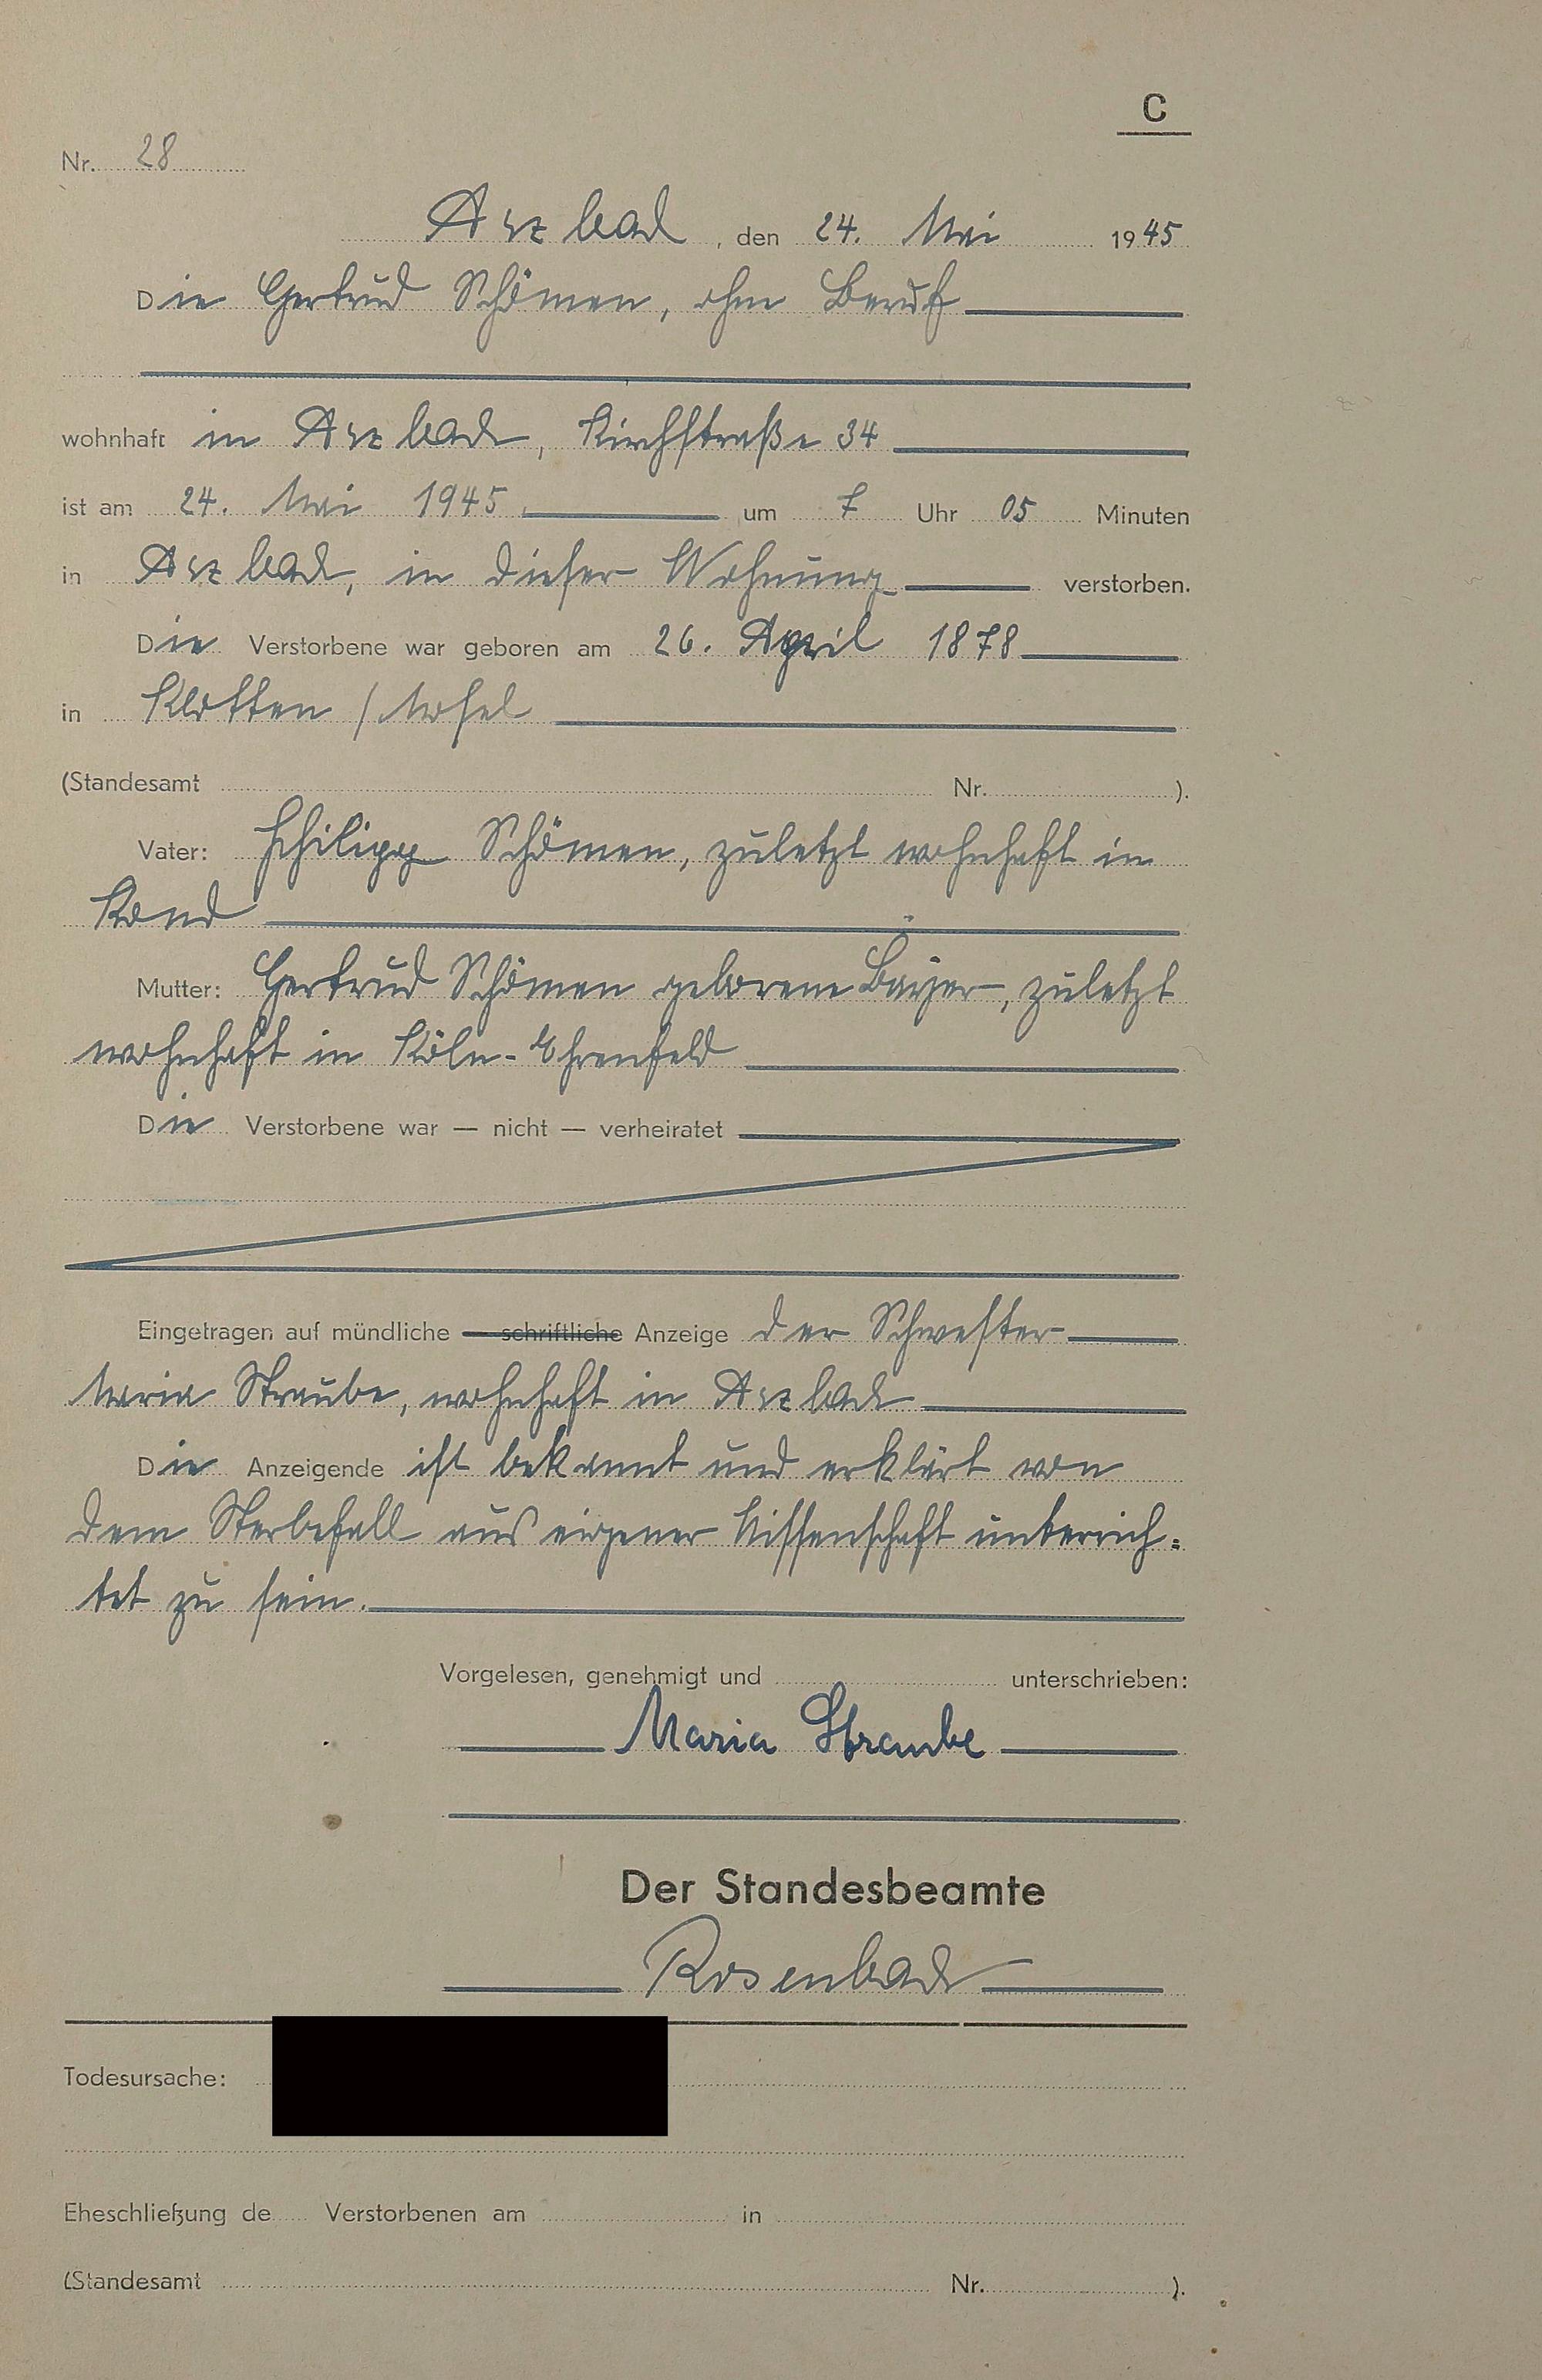 C
Nr. 28
Arzbach, den 24. Mai 1945
Die Gertrud Schömen, ohne Beruf
wohnhaft in Arzbach, Kirchstraße 34
ist am 24. Mai 1945 um 7 Uhr 05 Minuten
in Arzbach, in dieser Wohnung verstorben.
Die Verstorbene war geboren am 26. April 1878
in Klotten / Mosel
(Standesamt Nr. ).
Vater: Philipp Schömen, zuletzt wohnhaft in
Kond
Mutter: Gertrud Schömen geborene Bayer, zuletzt
wohnhaft in Köln-Ehrenfeld
Die Verstorbene war — nicht — verheiratet
Eingetragen auf mündliche — schriftliche Anzeige der Schwester
Maria Straube, wohnhaft in Arzbach
Die Anzeigende ist bekannt und erklärt von
dem Sterbefall aus eigener Wissenschaft unterrich=
tet zu sein.
Vorgelesen, genehmigt und unterschrieben:
Maria Straube
Der Standesbeamte
Rosenbach
Todesursache:
Eheschließung de Verstorbenen am in
(Standesamt Nr. ).